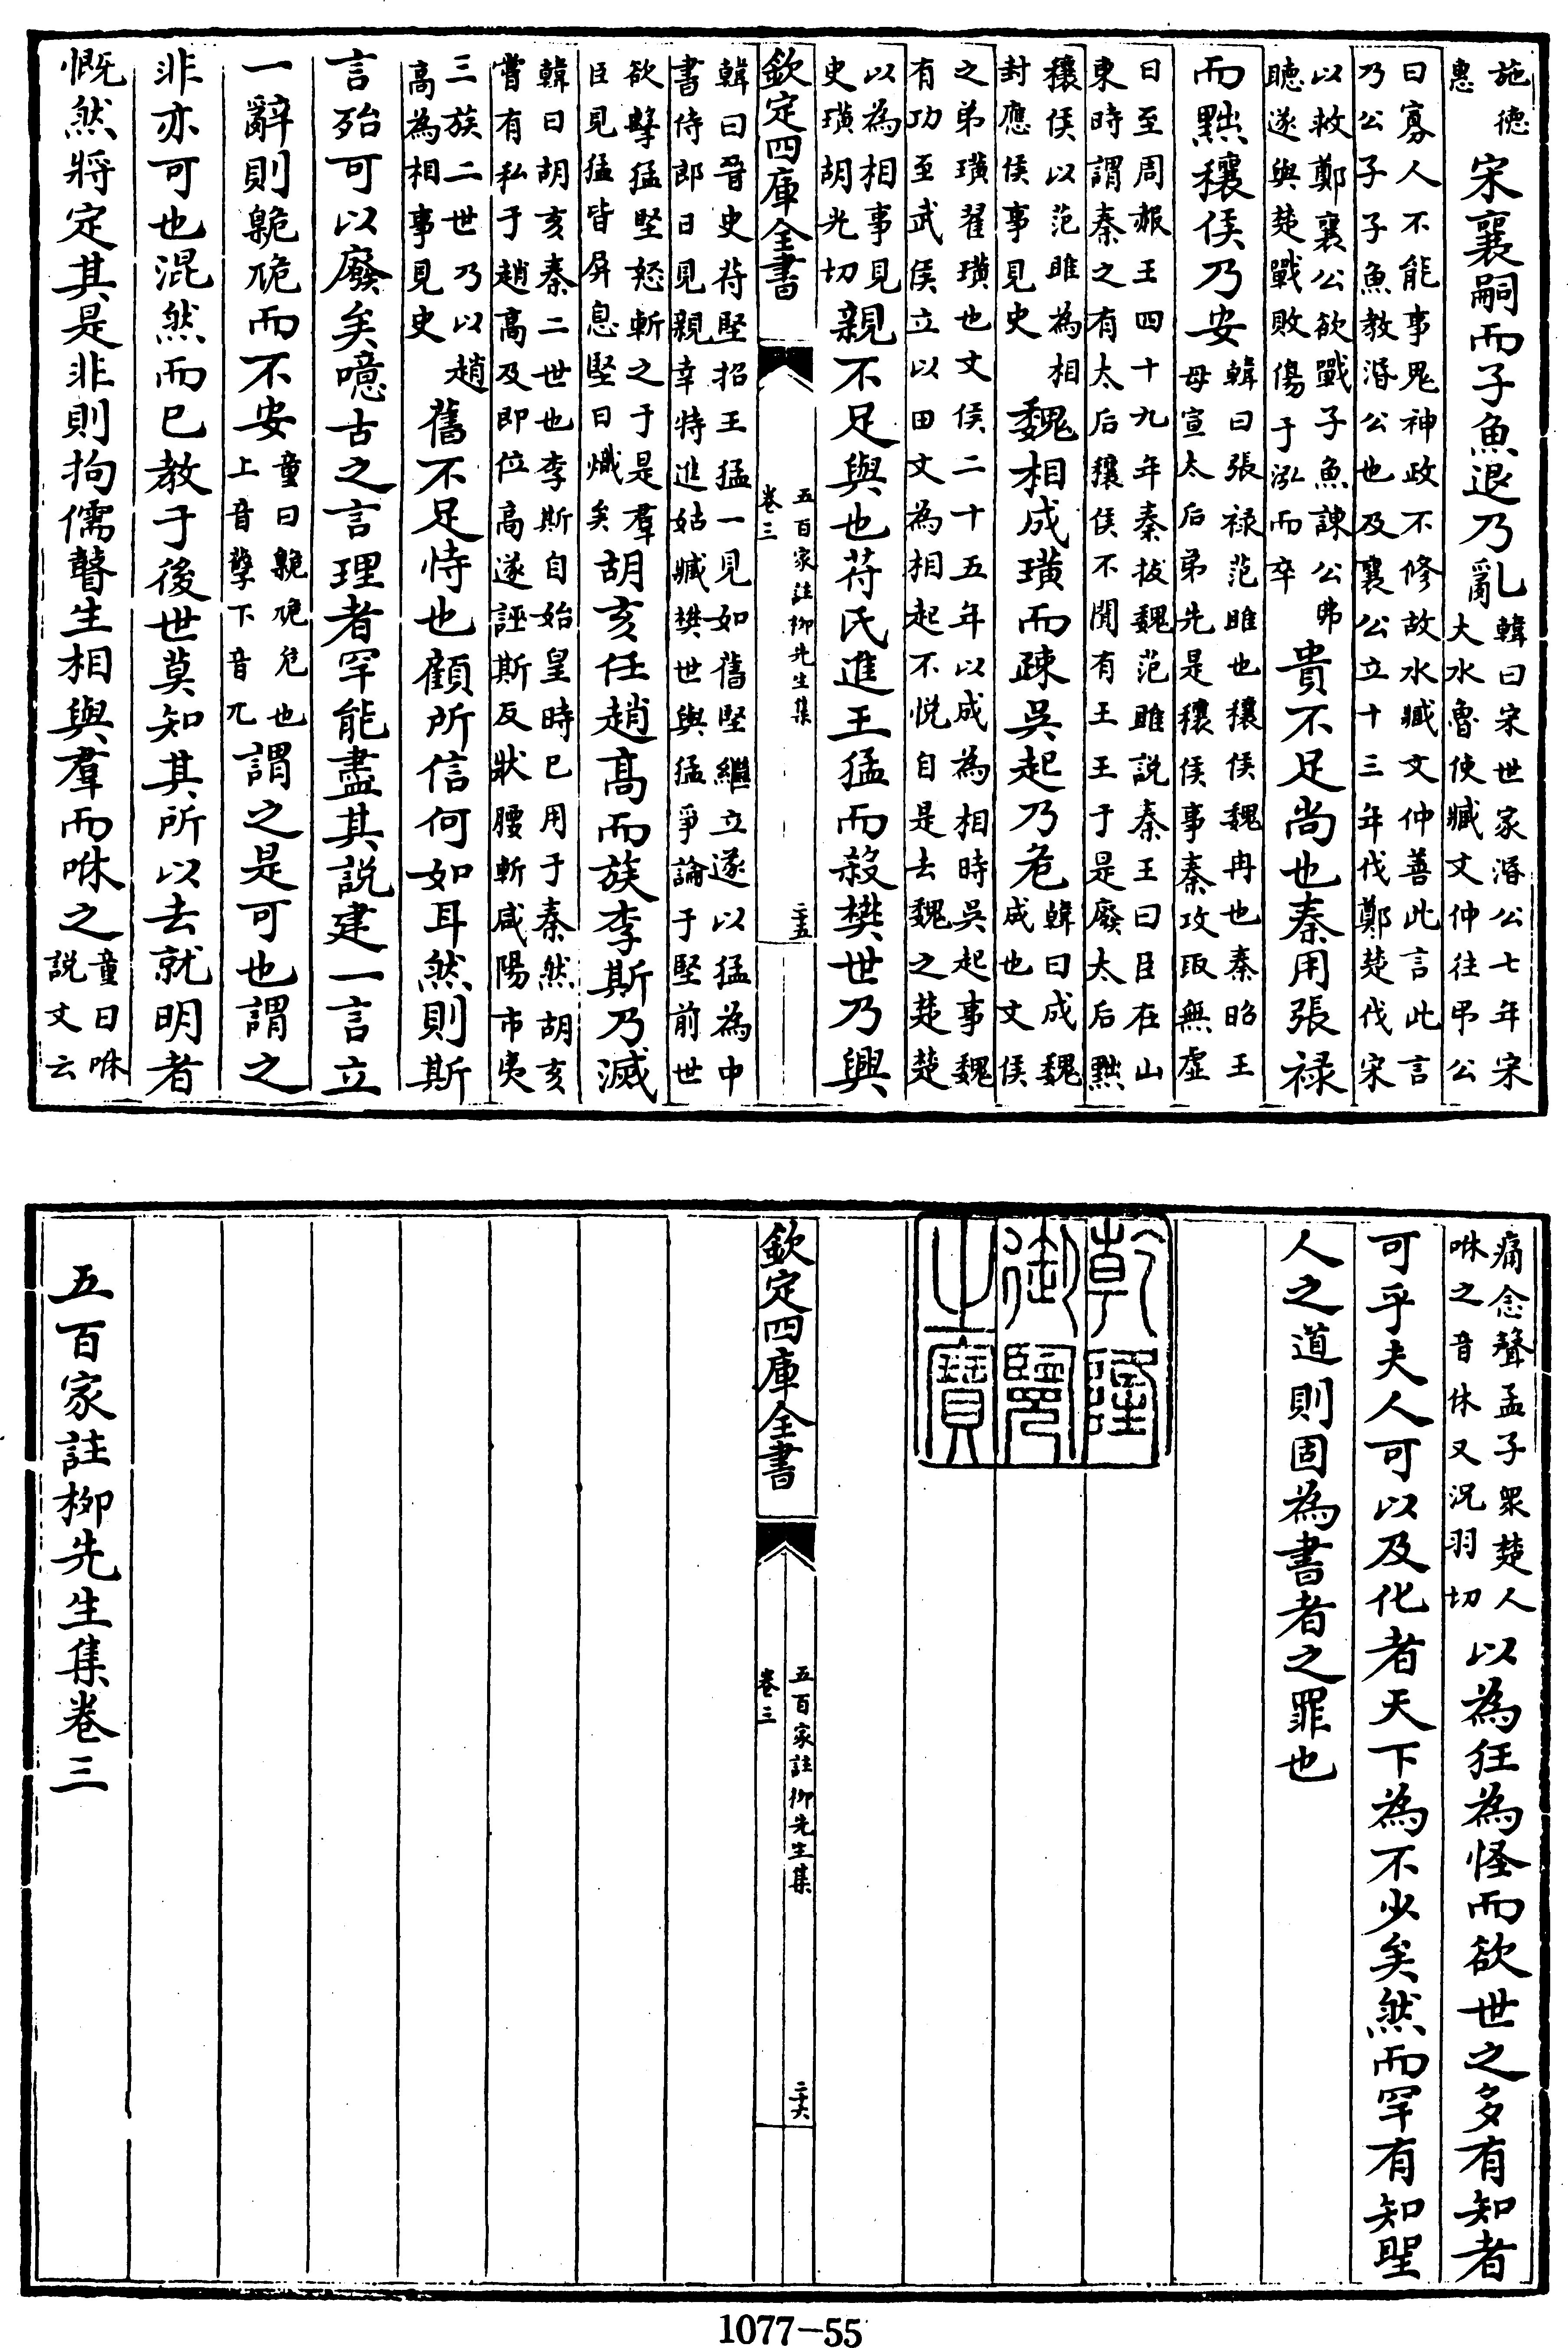 施德
惠
宋襄嗣而子魚退乃亂
韓曰宋世家湣公七年宋
大水魯使臧文仲往弔公
曰寡人不能事鬼神政不修故水臧文仲善此言此言
乃公子子魚教湣公也及襄公立十三年伐鄭楚伐宋
以救鄭襄公欲戰子魚諌公弗
聽遂與楚戰敗傷于泓而卒
貴不足尚也秦用張禄
而黜穰侯乃安
韓曰張禄范睢也穰侯魏冉也秦昭王
母宣太后弟先是穰侯事秦攻取無虛
日至周赧王四十九年秦拔魏范雎説秦王曰臣在山
東時謂秦之有太后穰侯不聞有王王于是廢太后黜
穰侯以范雎為相
封應侯事見史
魏相成璜而疎吳起乃危
韓曰成魏
成也文侯
之弟璜翟璜也文侯二十五年以成為相時吳起事魏
有功至武侯立以田文為相起不悦自是去魏之楚楚
以為相事見
史璜胡光切
親不足與也苻氏進王猛而殺樊世乃興
欽定四庫全書
五百家註柳先生集
卷三
二十五
韓曰晉史苻堅招王猛一見如舊堅繼立遂以猛為中
書侍郎日見親幸特進姑臧樊世與猛爭論于堅前世
欲擊猛堅怒斬之于是羣
臣見猛皆屏息堅曰熾矣
胡亥任趙高而族李斯乃滅
韓曰胡亥秦二世也李斯自始皇時已用于秦然胡亥
嘗有私于趙高及即位高遂誣斯反狀腰斬咸陽市夷
三族二世乃以趙
高為相事見史
舊不足恃也顧所信何如耳然則斯
言殆可以廢矣噫古之言理者罕能盡其説建一言立
一辭則臲卼而不安
童曰臲卼危也
上音孽下音兀
謂之是可也謂之
非亦可也混然而已教于後世莫知其所以去就明者
慨然將定其是非則拘儒瞽生相與羣而咻之
童曰咻
説文云
痛念聲孟子眾楚人
咻之音休又况羽切
以為狂為怪而欲世之多有知者
可乎夫人可以及化者天下為不少矣然而罕有知聖
人之道則固為書者之罪也
乾隆御覽之寶
欽定四庫全書
五百家註柳先生集
卷三
二十六
五百家註柳先生集卷三
1077-55